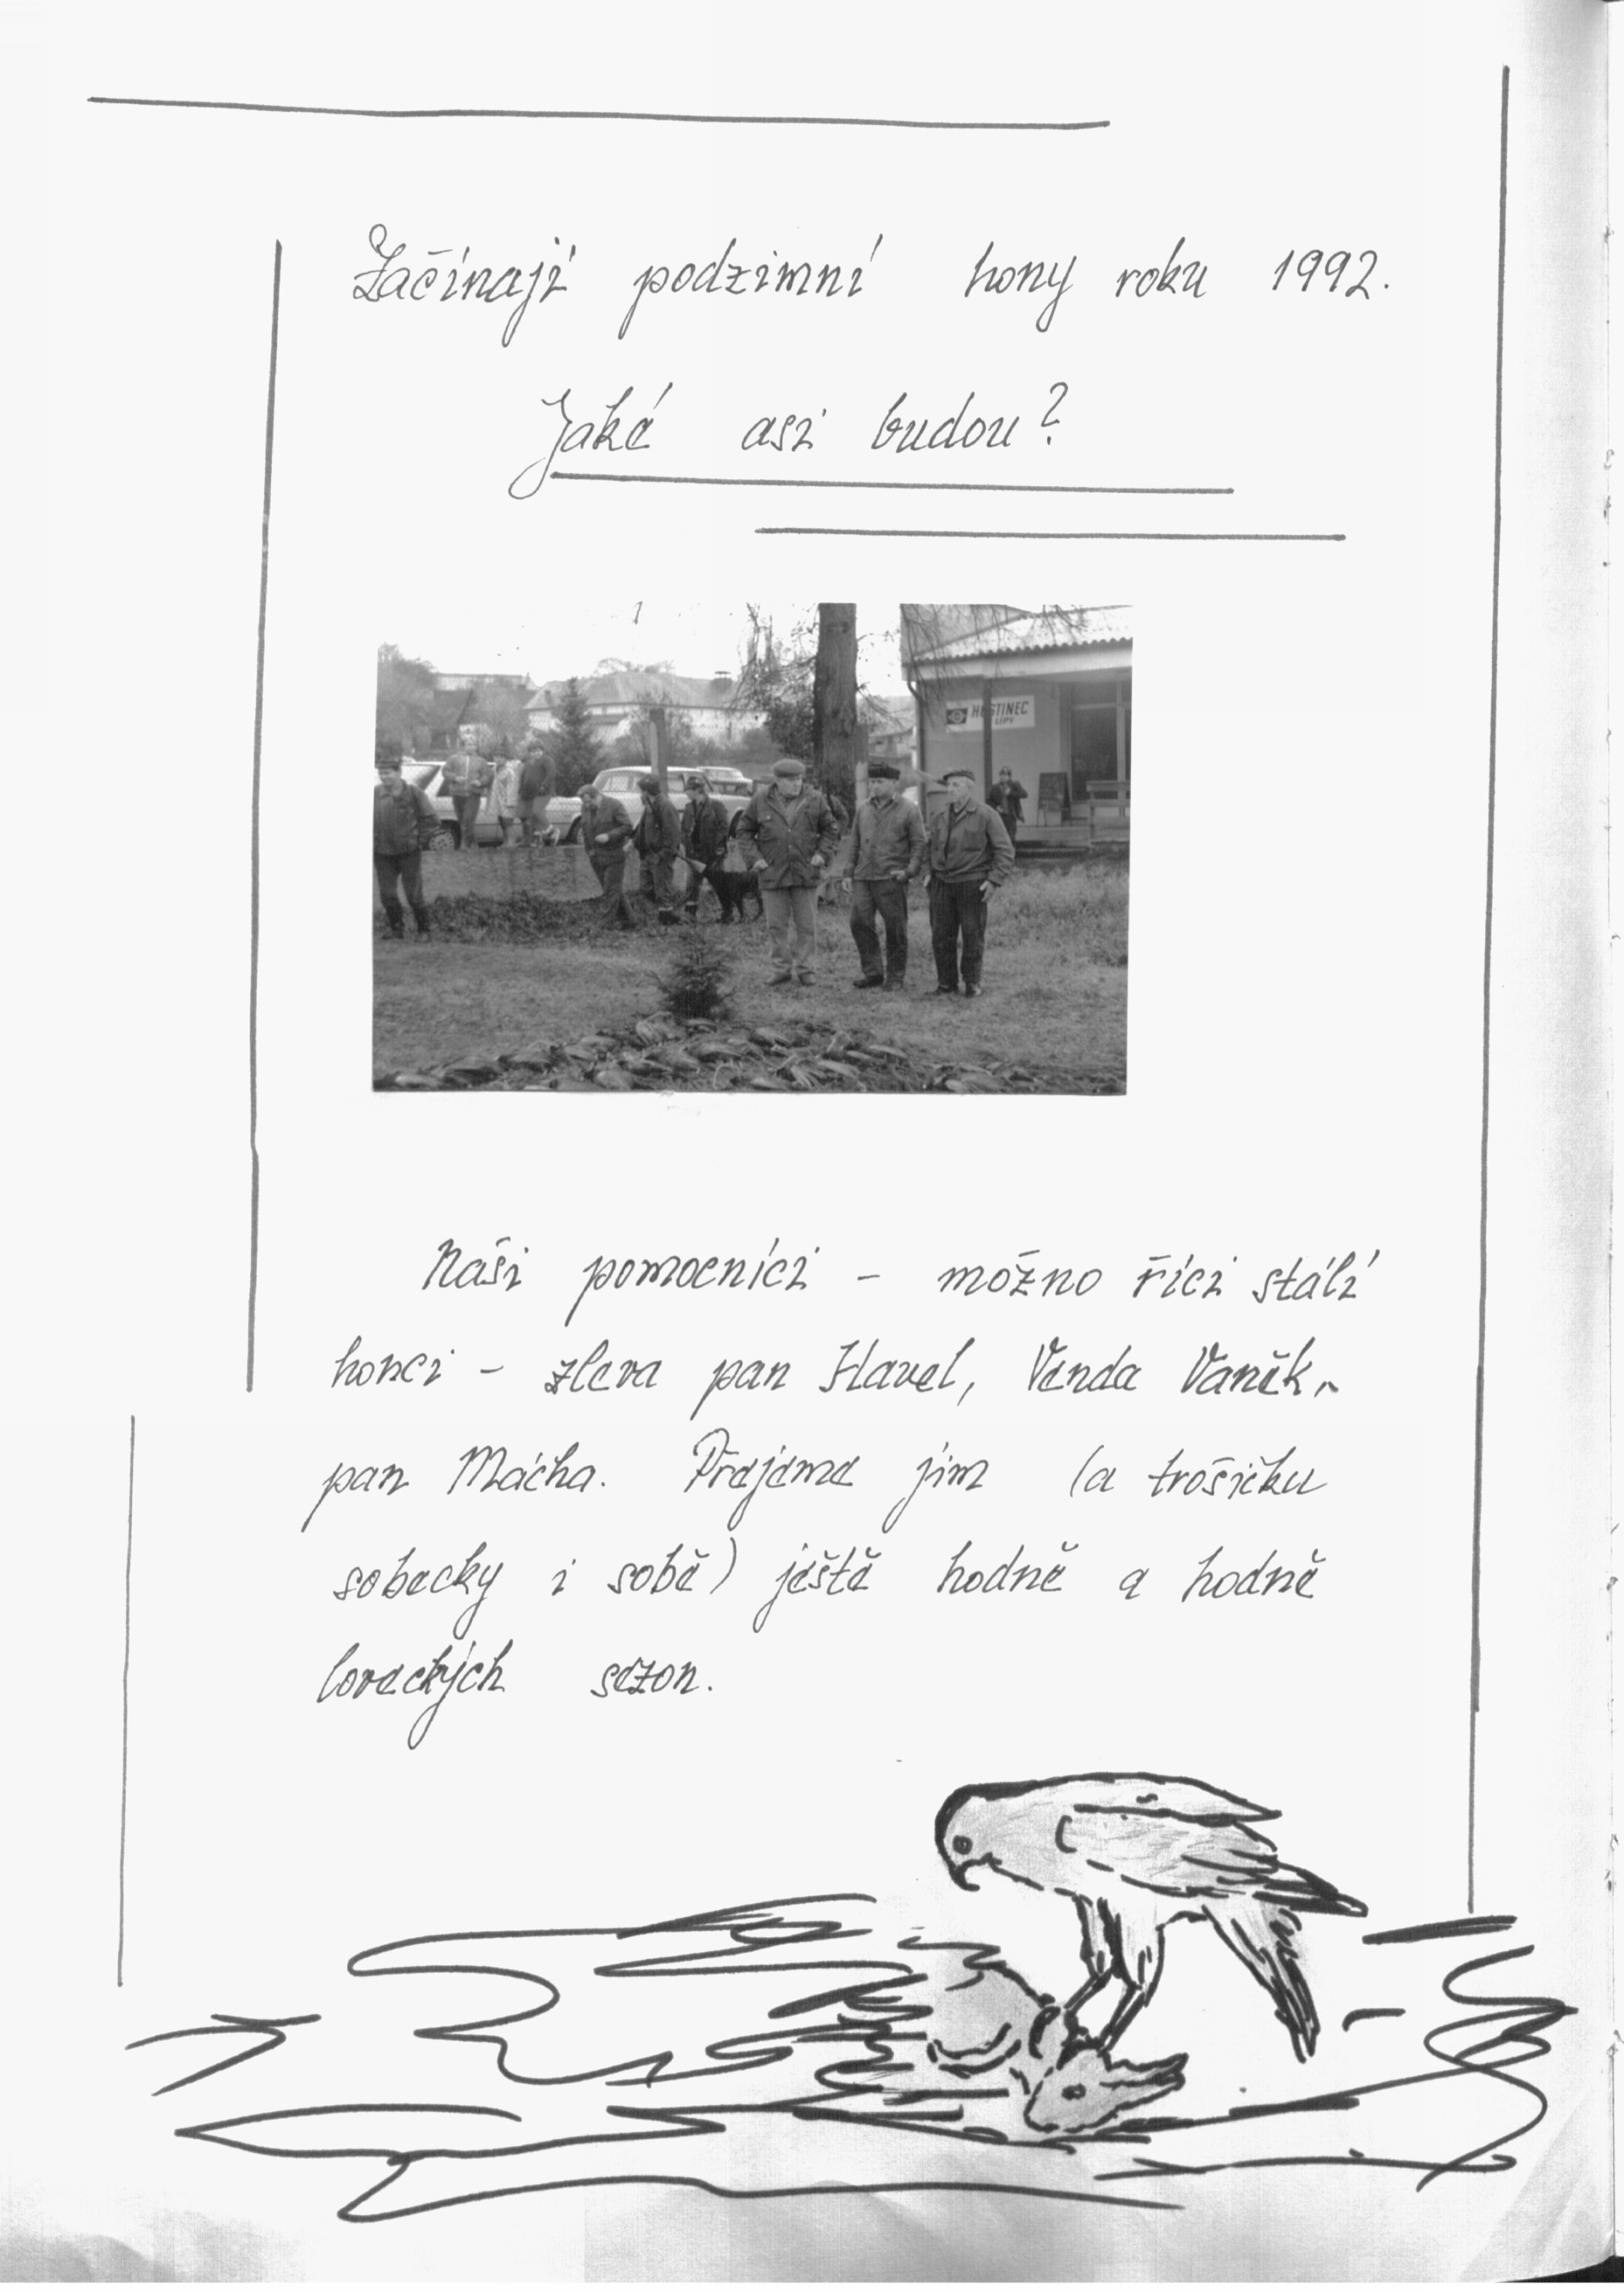 Začínají podzimní hony roku 1992.
Jaké asi budou?
HOSTINEC
LIPY
Naši pomocníci – možno říci stálí
honci – zleva pan Havel, Venda Vaněk,
pan Mácha. Přejeme jim (a trošičku
sobecky i sobě) ještě hodně a hodně
loveckých sezon.